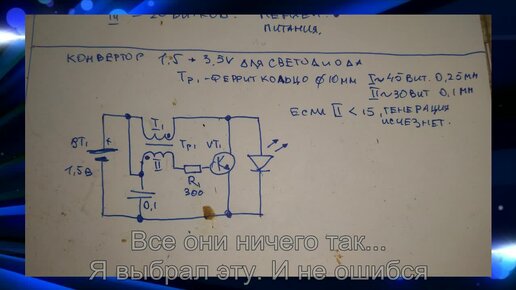 III — 20 витков.
ПИТАНИЯ.
КОНВЕРТОР 1,5 → 3,5V ДЛЯ СВЕТОДИОДА
Тр₁ - ФЕРРИТ КОЛЬЦО ϕ10мм I~45 ВИТ. 0,25мм
II~30 ВИТ 0,1мм
ЕСЛИ II < 15, ГЕНЕРАЦИЯ
ИСЧЕЗНЕТ.
I₁
ВТ₁
+
Тр₁
VT₁
II
1,5в
R₁
300
0,1
Все они ничего так...
Я выбрал эту. И не ошибся